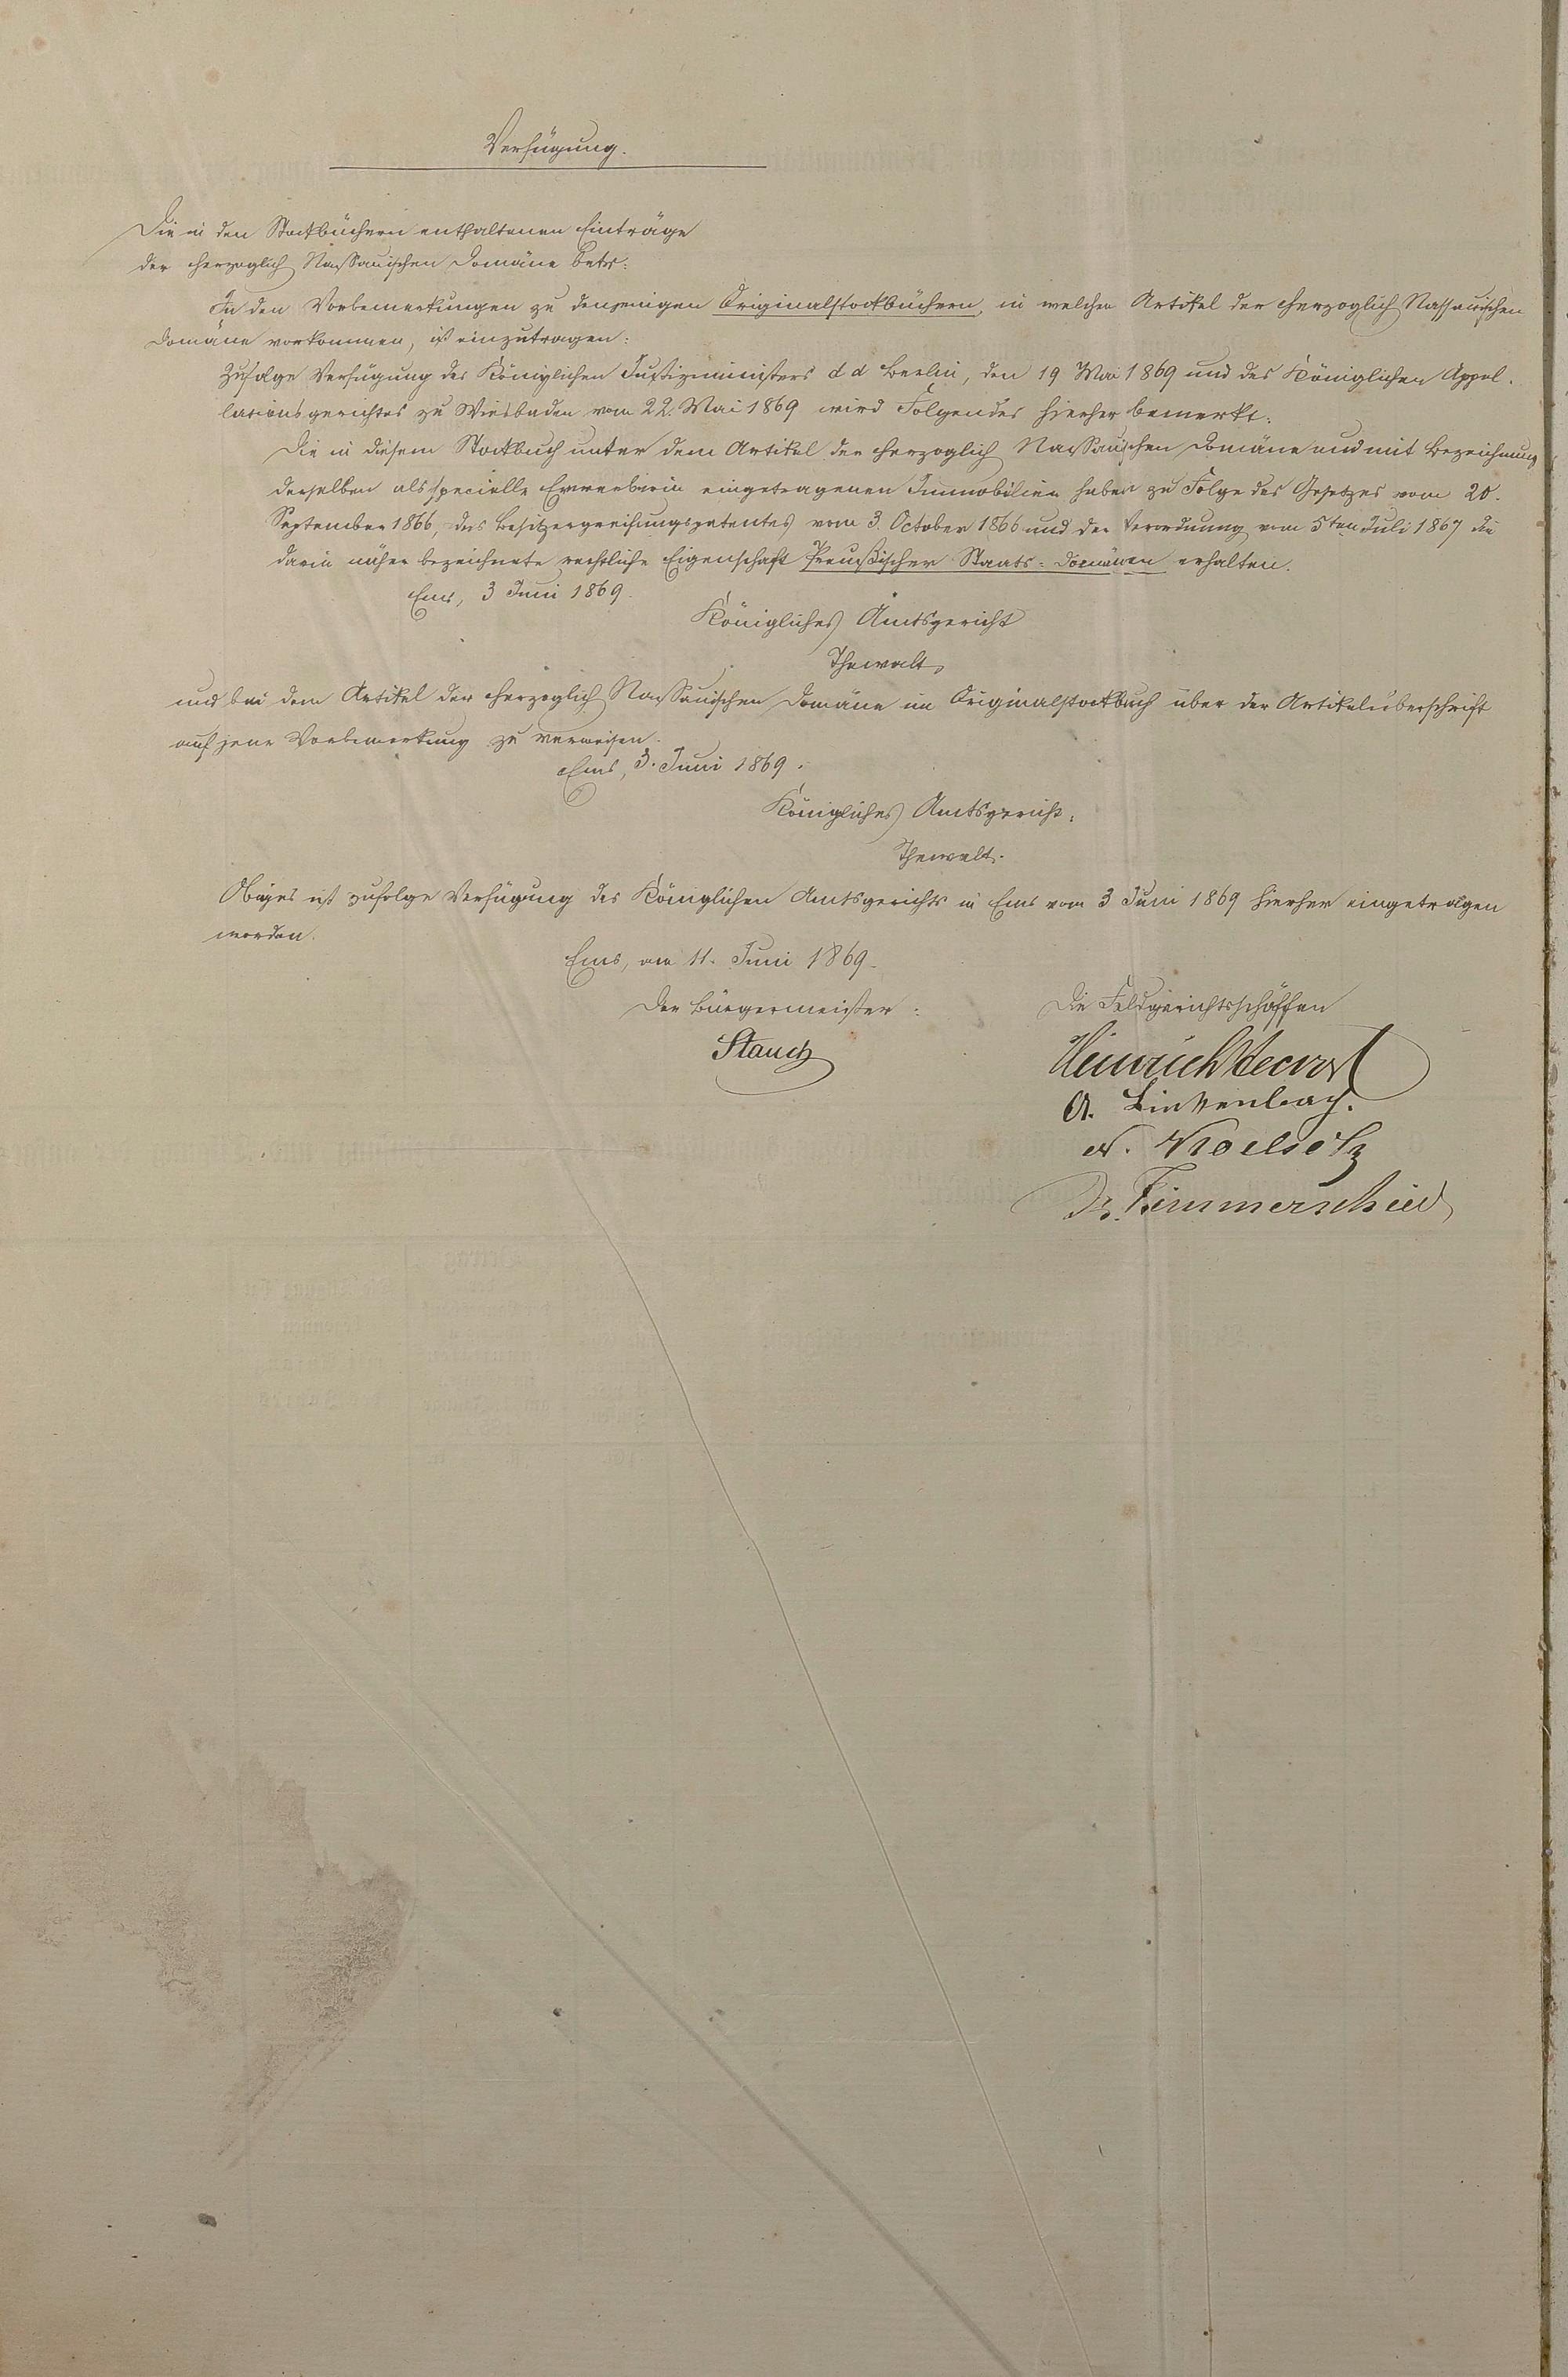 Verfügung.
Die in den Stockbüchern enthaltenen Einträge
der Herzoglich Nassauischen Domäne betr:
In den Vorbemerkungen zu denjenigen Originalstockbüchern, in welchen Artikel der Herzoglich Nassauischen
Domäne vorkommen, ist einzutragen:
Zufolge Verfügung des Königlichen Justizministers d d Berlin, den 19 Mai 1869 und des Königlichen Appel-
lationsgerichtes zu Wiesbaden vom 22. Mai 1869 wird Folgendes hierher bemerkt:
Die in diesem Stockbuch unter dem Artikel der Herzoglich Nassauischen Domäne und mit Bezeichnung
derselben als specielle Erwerberin eingetragenen Immobilien haben zu Folge des Gesetzes vom 20.
September 1866, des Besitzergreifungspatentes vom 3. October 1866 und der Verordnung vom 5ten Juli 1867 die
darin näher bezeichnete rechtliche Eigenschaft Preußischer Staats-Domänen erhalten.
Ems, 3 Juni 1869.
Königliches Amtsgericht
Thewalt
und bei dem Artikel der Herzoglich Nassauischen Domäne im Originalstockbuch über der Artikelüberschrift
auf jene Vorbemerkung zu verweisen.
Ems, 3. Juni 1869.
Königliches Amtsgericht.
Thewalt.
Obiges ist zufolge Verfügung des Königlichen Amtsgerichts in Ems vom 3 Juni 1869 hierher eingetragen
worden.
Ems, am 11. Juni 1869.
Der Bürgermeister:
Die Feldgerichtsschöffen
Heinrich
A. Linkenbach.